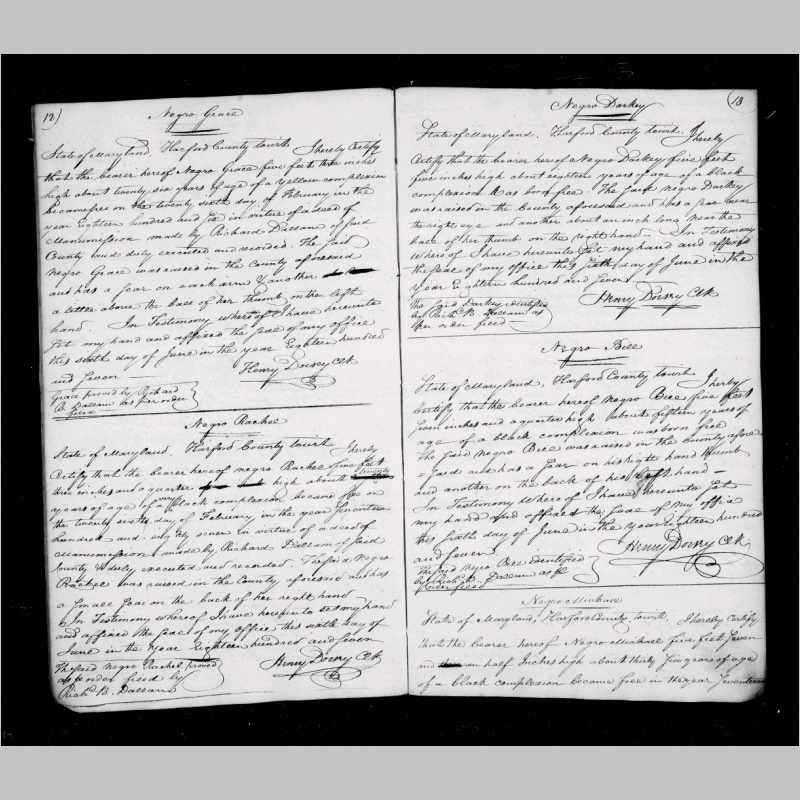 12)
Negro Grace
State of Maryland, Harford County Court. I hereby Certify
that the bearer hereof Negro Grace five feet three inches
high about twenty six years of age of a yellow complexion
became free on the twenty sixth day of February in the
year Eighteen hundred and in virtue of a deed of
Manumission made by Richard Dallam of said
County and duly executed and recorded. The said
Negro Grace was raised in the County aforesaid
and has a scar on each arm & another
a letter above the base of her thumb on the left
hand. In Testimony whereof I have hereunto
set my hand and affixed the seal of my office
this sixth day of June in the year Eighteen hundred
and Seven
Henry Dorsey Clk
Grace proved by Richard
B. Dallam as per order
filed
Negro Rachel
State of Maryland. Harford County Court I hereby
Certify that the bearer hereof negro Rachel five feet
three inches and a quarter high about twenty
years of age of a black complexion became free on
the twenty sixth day of February in the year Seventeen
hundred and eighty seven in virtue of a deed of
Manumission made by Richard Dallam of said
County & duly executed and recorded. The said Negro
Rachel was raised in the County aforesaid and has
a small scar on the back of her right hand
In Testimony whereof I have hereunto set my hand
and affixed the seal of my office this sixth day of
June in the Year Eighteen hundred and Seven
Henry Dorsey Clk
The said negro Rachel proved
as per order filed by
Richd. B. Dallam
(13
Negro Darkey
State of Maryland, Harford County Court. I hereby
Certify that the bearer hereof Negro Darkey five feet
five inches high about eighteen years of age of a black
complexion was born free. The said Negro Darkey
was raised in the County aforesaid and has a scar near
the right eye and another about an inch long near the
back of her thumb on the right hand — In Testimony
whereof I have hereunto set my hand and affixed
the seal of my office this sixth day of June in the
Year Eighteen hundred and Seven
Henry Dorsey Clk
The said Darkey identified
by Richd. B. Dallam as
per order filed
Negro Bill
State of Maryland, Harford County Court I hereby
Certify that the bearer hereof Negro Bill five feet
seven inches and a quarter high about fifteen years of
age of a black complexion was born free
The said Negro Bill was raised in the County afore
= said and has a scar on his right hand thumb
and another on the back of his left hand —
In Testimony whereof I have hereunto set
my hand and affixed the seal of my office
this sixth day of June in the year Eighteen hundred
and Seven
Henry Dorsey Clk
The said Negro Bill identified
by Richd. B. Dallam as per
order filed
Negro Michael
State of Maryland, Harford County Court, I hereby Certify
that the bearer hereof Negro Michael five feet Seven
and half Inches high about thirty years of age
of a black complexion became free in the year Seventeen